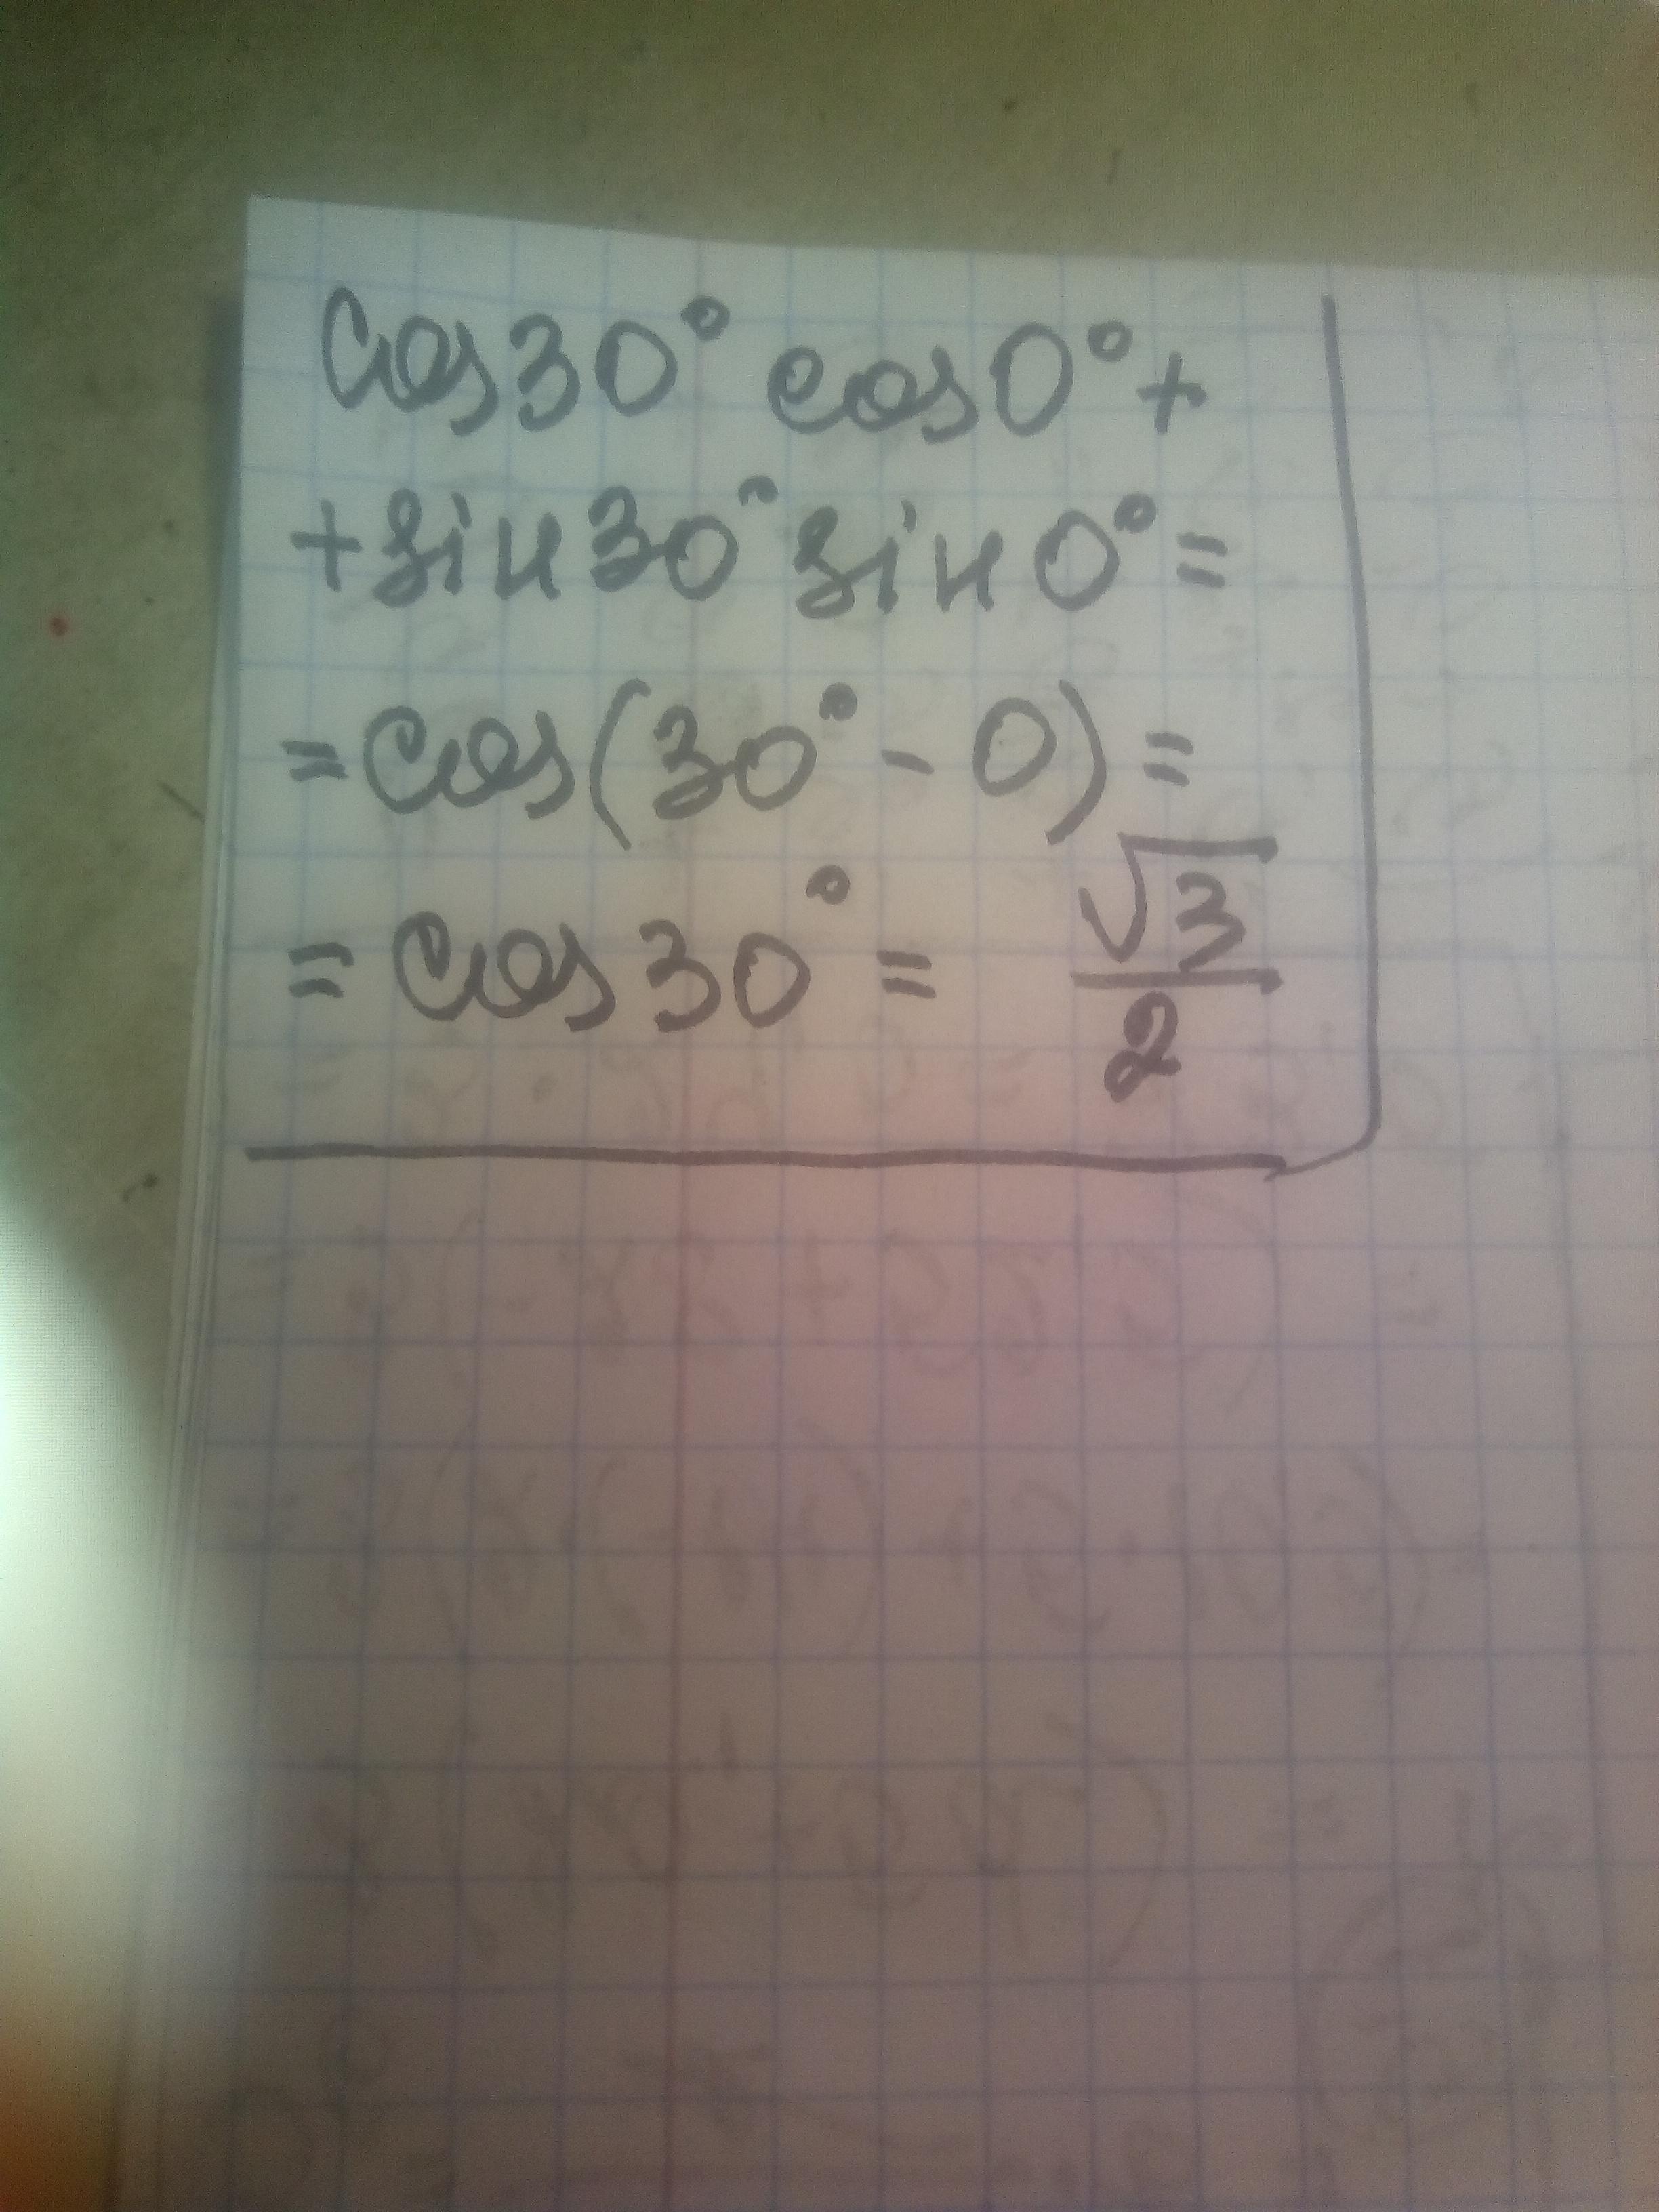 cos30° cos0° +
+ sin30° sin0° =
= cos(30° - 0) =
= cos30° = √3/2